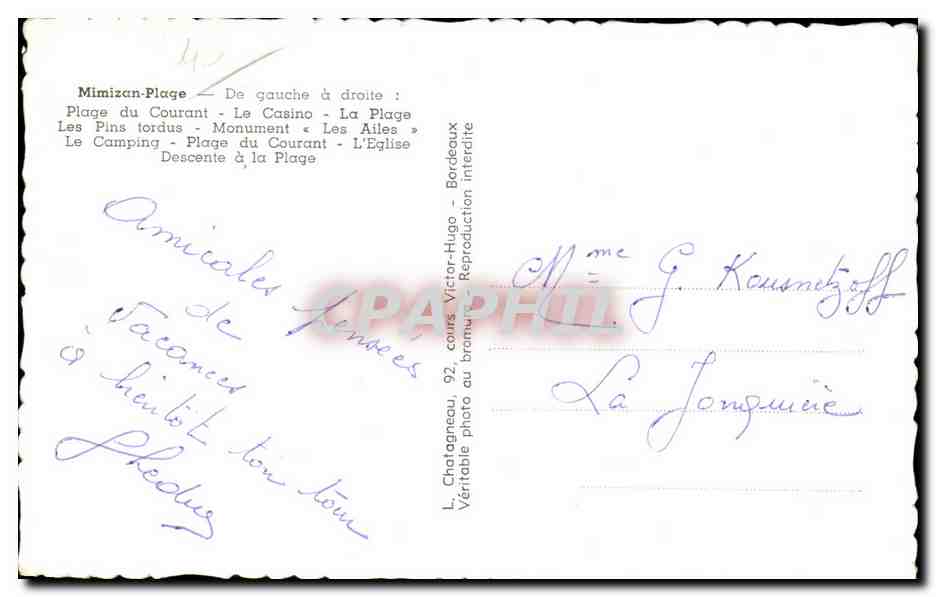 Mimizan-Plage — De gauche à droite :
Plage du Courant - Le Casino - La Plage
Les Pins tordus - Monument « Les Ailes »
Le Camping - Plage du Courant - L'Eglise
Descente à la Plage
Amicales pensées
de
Vacances
à bientôt ton tour
L. Chatagneau, 92, cours Victor-Hugo - Bordeaux
Véritable photo au bromure - Reproduction interdite
CPAPHIL
Mme G. Kousnetzoff
La Jonquière